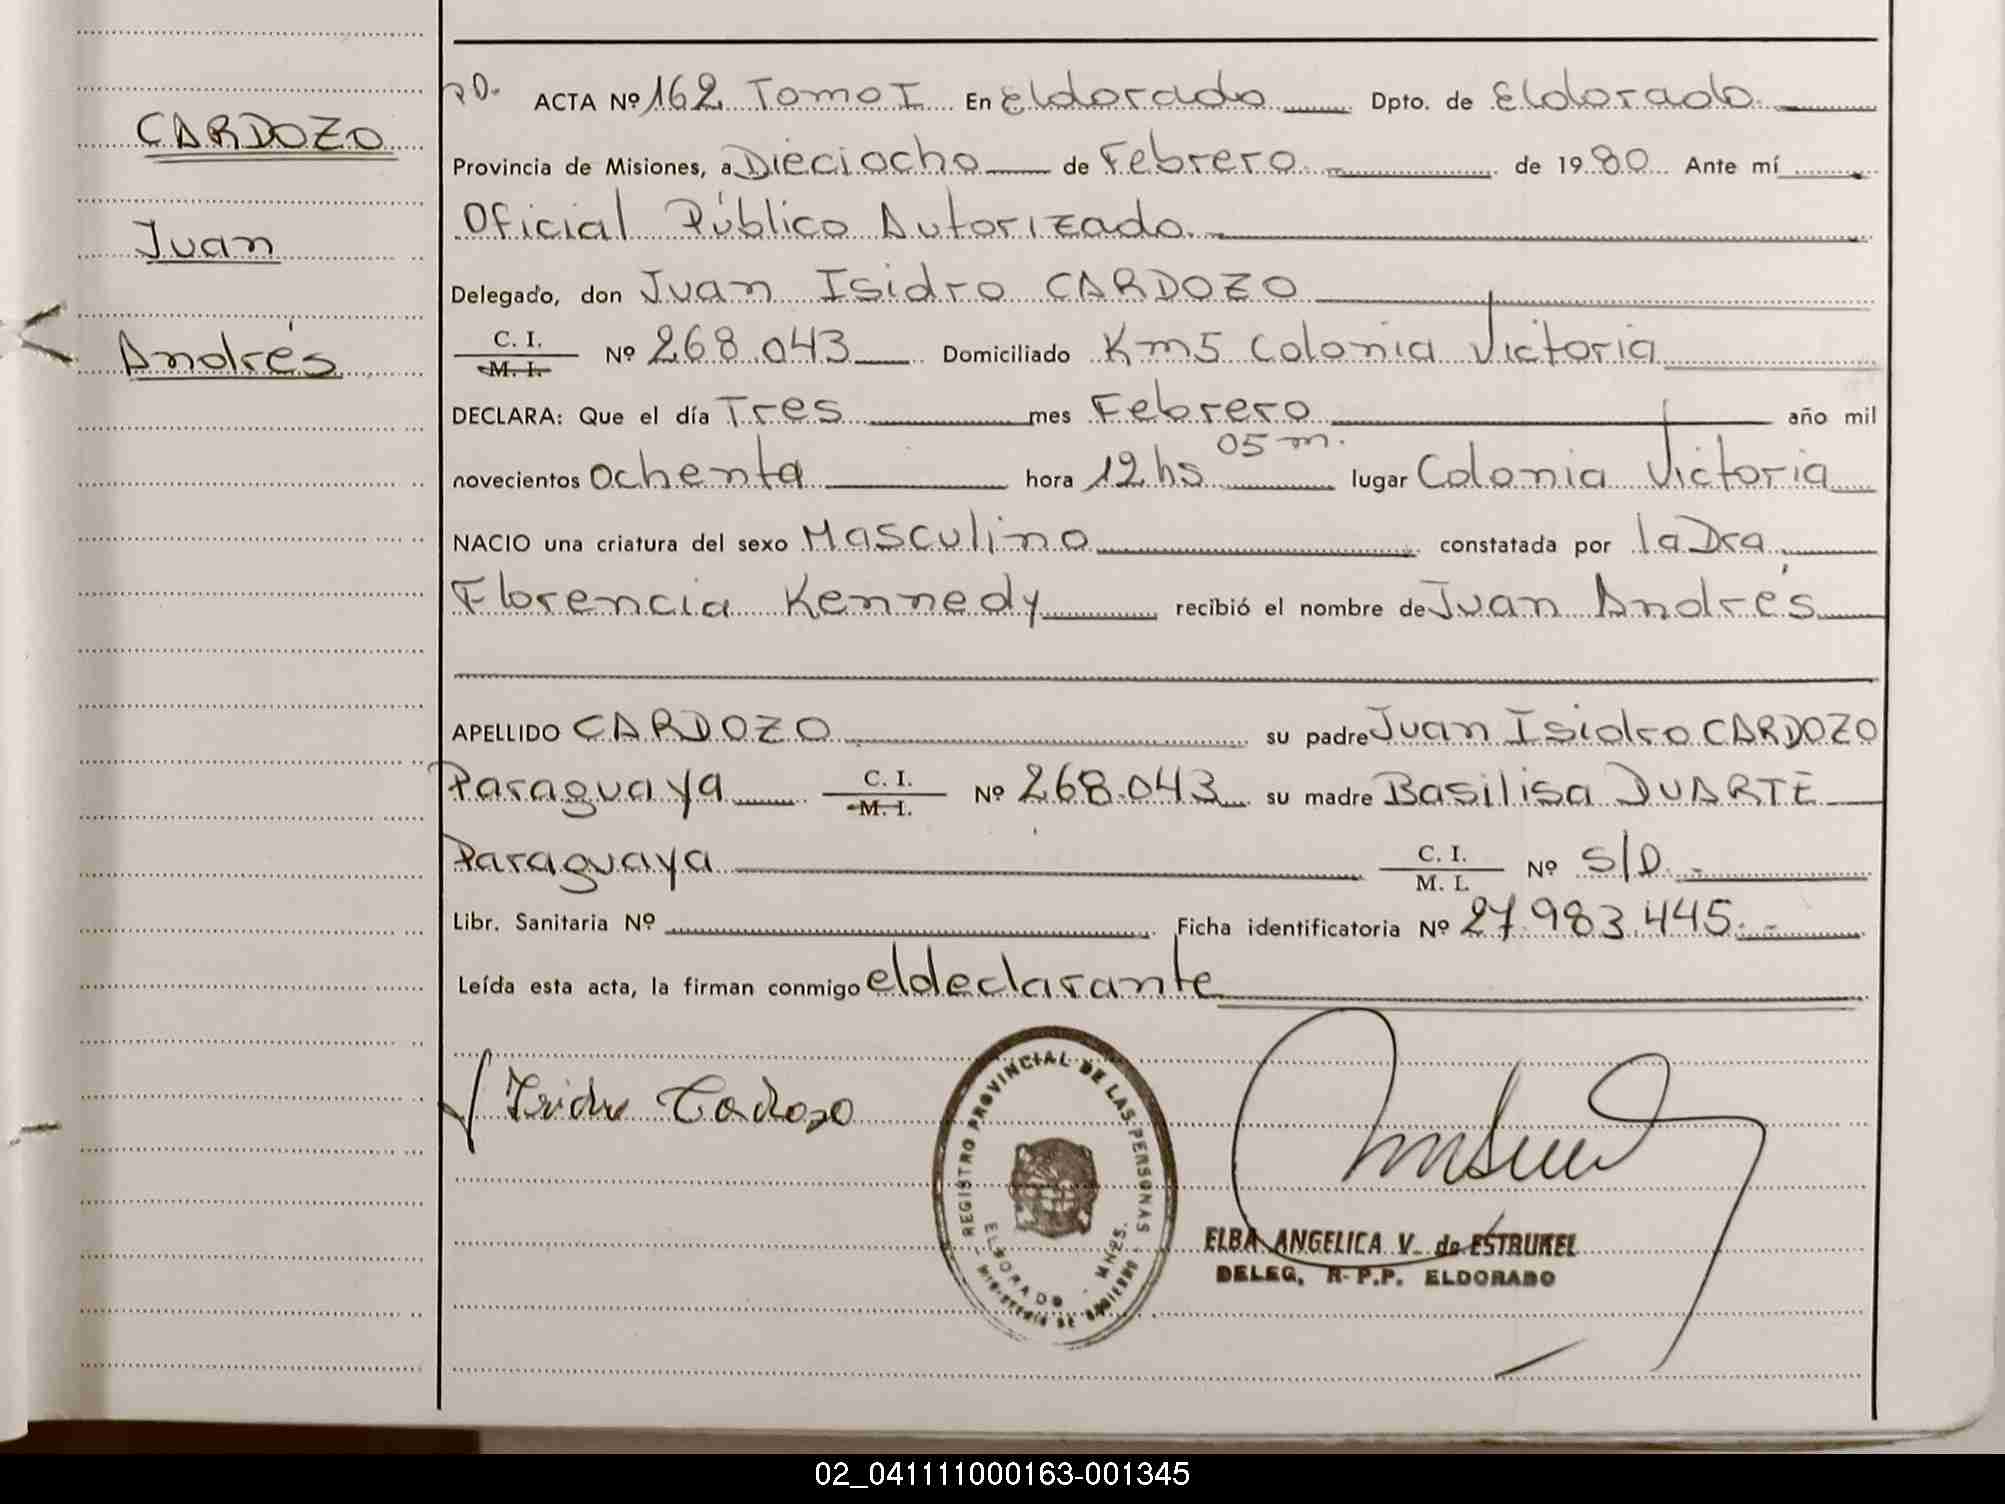 CARDOZO
Juan
Andrés
ACTA Nº 162 Tomo I En Eldorado Dpto. de Eldorado.
Provincia de Misiones, a Dieciocho de Febrero de 1980 Ante mí
Oficial Público Autorizado.
Delegado, don Juan Isidro CARDOZO
C. I.
M. I. Nº 268.043 Domiciliado Km5 Colonia Victoria
DECLARA: Que el día Tres mes Febrero año mil
novecientos ochenta hora 12 hs 05 m. lugar Colonia Victoria
NACIO una criatura del sexo Masculino constatada por la Dra
Florencia Kennedy recibió el nombre de Juan Andrés
APELLIDO CARDOZO su padre Juan Isidro CARDOZO
Paraguaya C. I.
M. I. Nº 268.043 su madre Basilisa DUARTE
Paraguaya C. I.
M. I. Nº S/D.-
Libr. Sanitaria Nº Ficha identificatoria Nº 27.983.445.-
Leída esta acta, la firman conmigo el declarante
Isidro Cardozo
REGISTRO PROVINCIAL DE LAS PERSONAS
ELDORADO - MNES.
MINISTERIO DE GOBIERNO
ELBA ANGELICA V. de ESTRUKEL
DELEG. R.P.P. ELDORADO
02_041111000163-001345